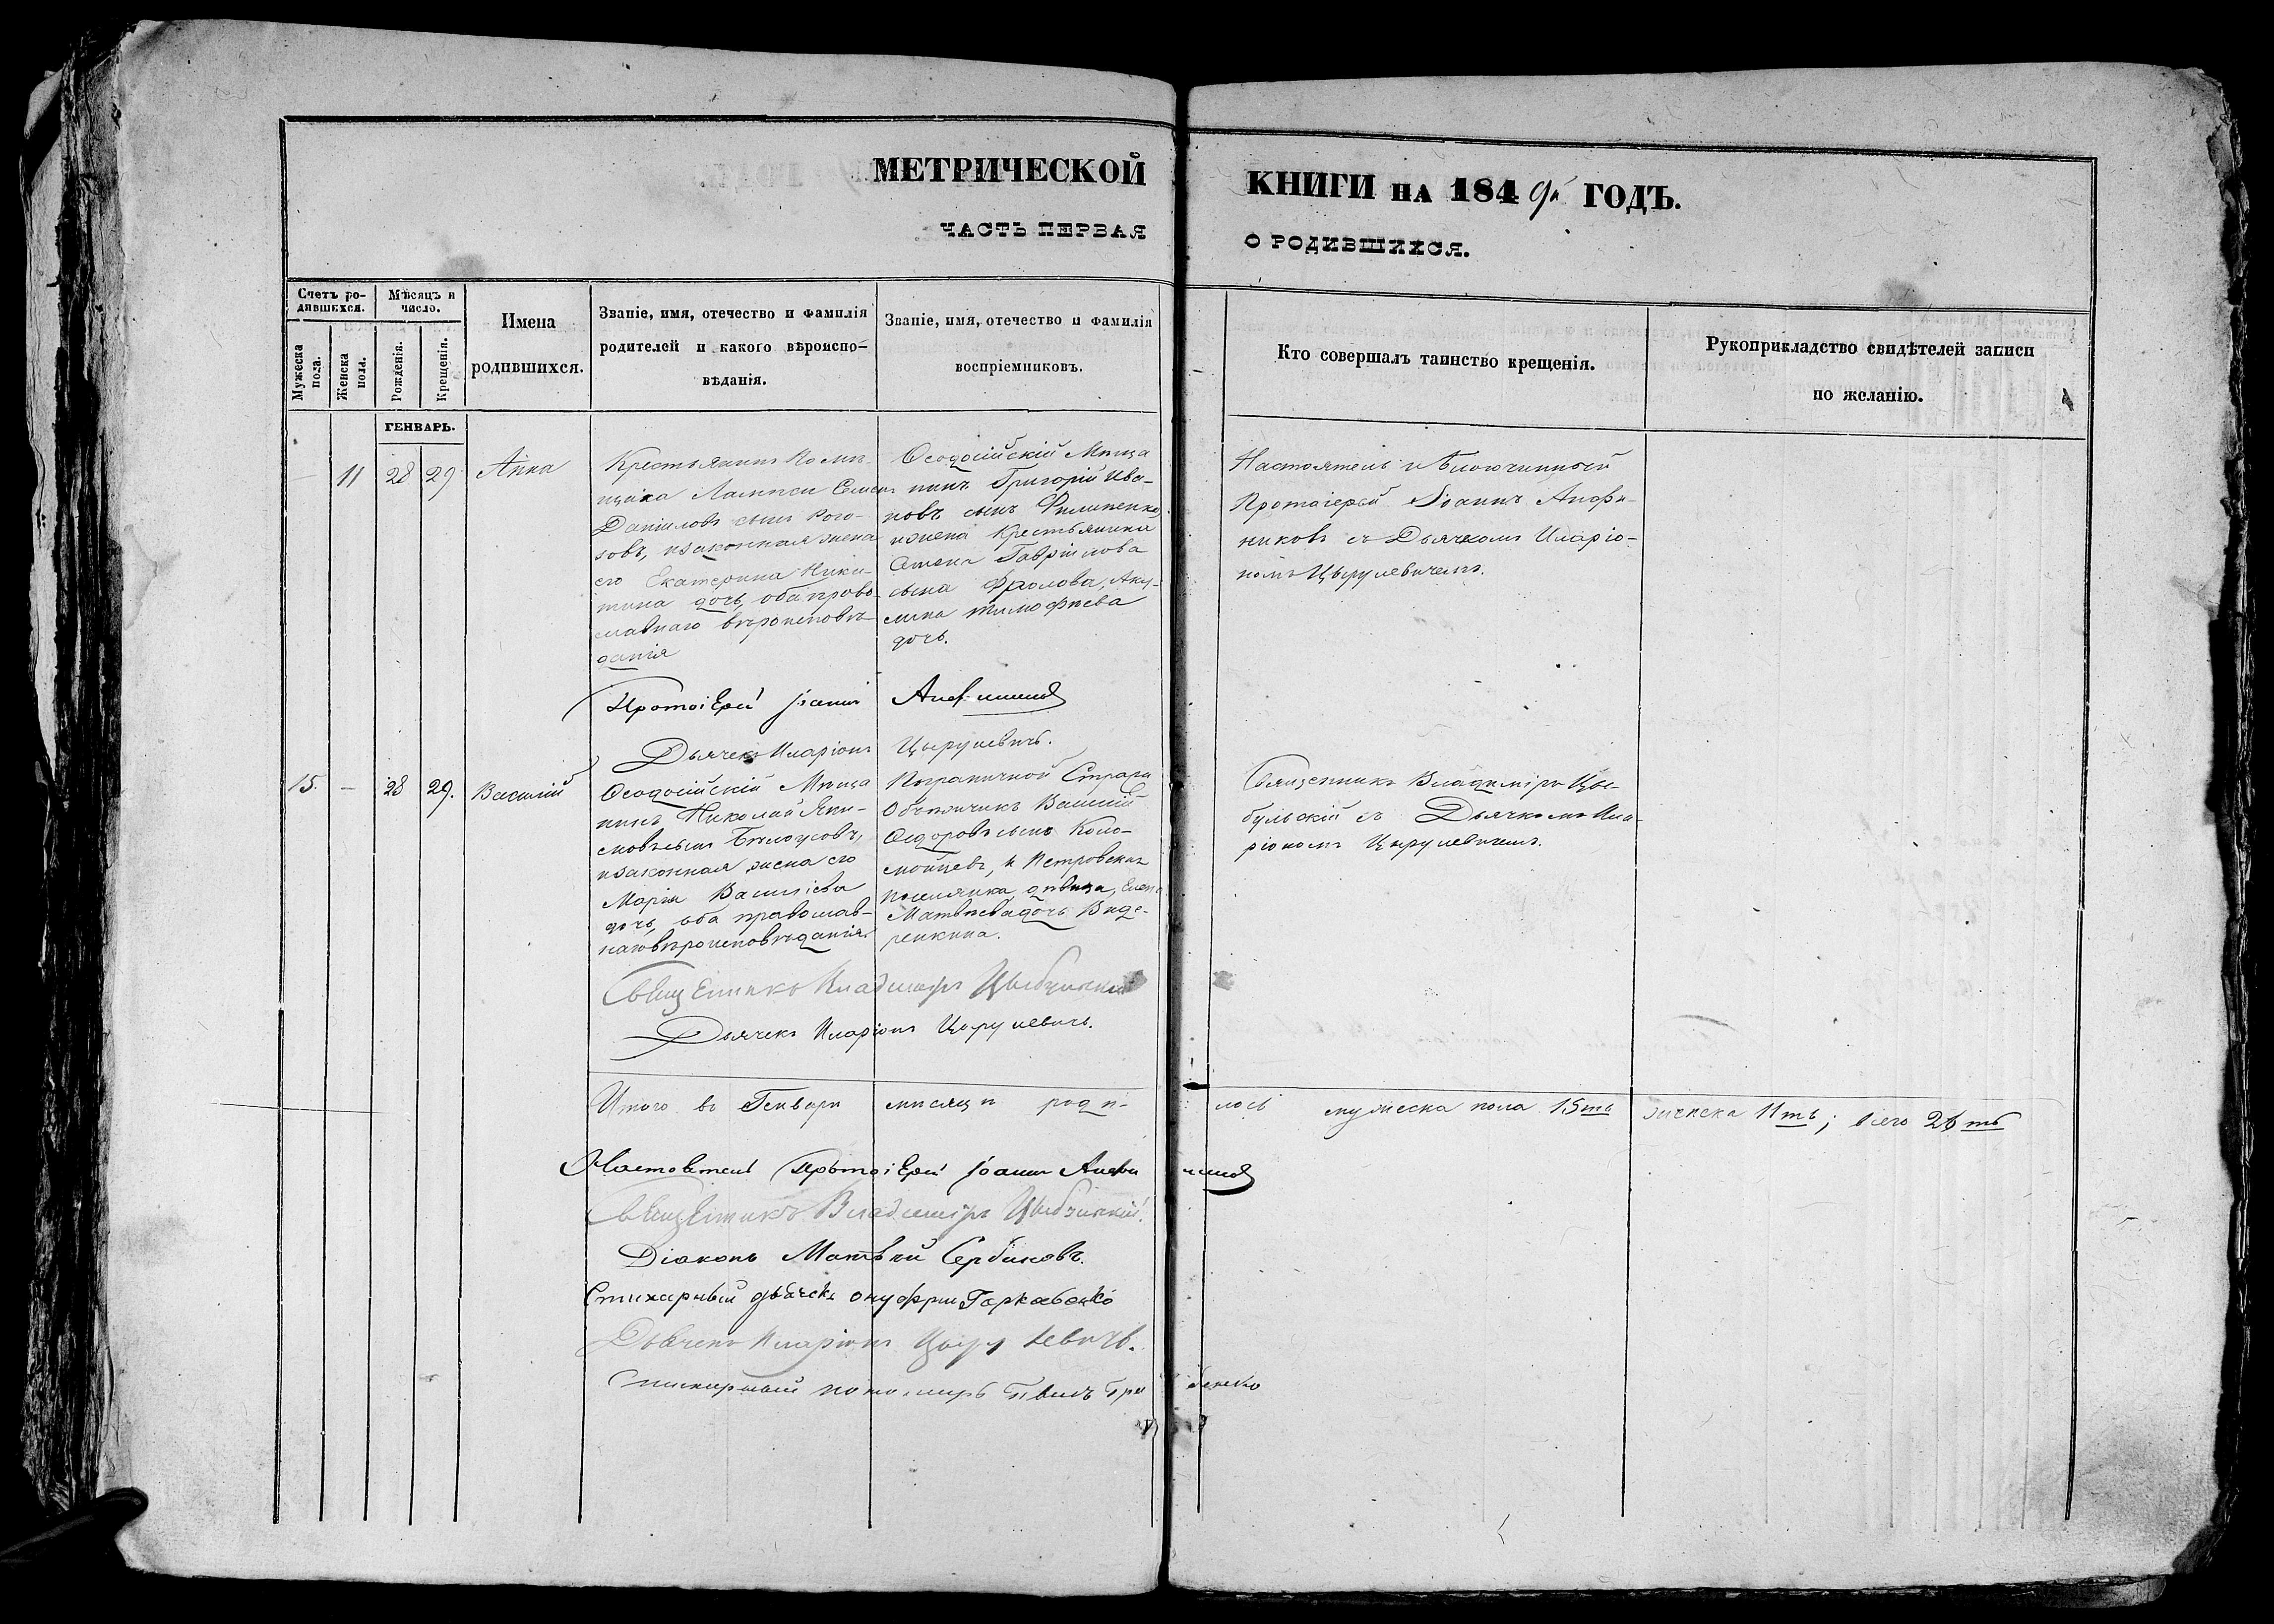 МЕТРИЧЕСКОЙ
ЧАСТЬ ПЕРВАЯ
КНИГИ НА 1849й ГОДЪ.
О РОДИВШИХСЯ.
Счетъ ро-
дившихся.
Мужеска
пола.
Женска
пола.
Мѣсяцъ и
число.
Рожденія.
Крещенія.
Имена
родившихся.
Званіе, имя, отечество и фамилія
родителей и какого вѣроиспо-
вѣданія.
Званіе, имя, отечество и фамилія
воспріемниковъ.
Кто совершалъ таинство крещенія.
Рукоприкладство свидѣтелей записи
по желанію.
ГЕНВАРЬ.
— 11 28 29 Анна
Крестьянинъ Помѣ-
щика
Даніиловъ сынъ Рого-
зовъ, и законная жена
его Екатерина Ники-
тина дочь, оба право-
славнаго вѣроисповѣ-
данія
Ѳеодосійскій Мѣща
нинъ Григорій Ива-
новъ сынъ Филипенко
и жена Крестьянина
Гавріилова
сына Фролова, Аку-
лина Тимофѣева
дочь.
Настоятель и Благочинный
Протоіерей Іоаннъ Анфи-
ногеновъ съ Дьячкомъ Иларіо-
номъ Цырулевичемъ.
Протоіерей Іоаннъ
Дьячекъ Иларіонъ Цырулевичъ.
15. — 28 29. Василій
Ѳеодосійскій Мѣща
нинъ Николай Яки-
мовъ сынъ Бѣлоусовъ,
и законная жена его
Марія Васильева
дочь, оба православ-
наго вѣроисповѣданія.
Пограничной Стражи
Объѣзчикъ Василій
Ѳедоровъ сынъ Коло-
мойцевъ, и Петровская
поселянка дѣвица, Елена
Матвѣева дочь
Священникъ Владиміръ Цы-
бульскій съ Дьячкомъ Ила-
ріономъ Цырулевичемъ.
Священникъ Владиміръ Цыбульскій
Дьячекъ Иларіонъ Цырулевичъ.
Итого въ Генварѣ мѣсяцѣ роди-
лось мужеска пола 15ть женска 11ть; всего 26ть
Настоятель Протоіерей Іоаннъ
Священникъ Владиміръ Цыбульскій.
Діаконъ Матвѣй Сербиновъ.
Стихарный дьячекъ Онуфрій
Дьячекъ Иларіонъ Цырулевичъ.
Стихарный пономарь